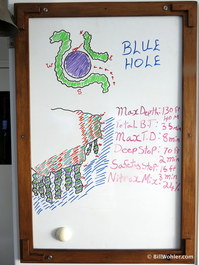 BLUE
HOLE
N
W
E
S
Max Depth: 130 ft
40 m
Total B.T.: 35 min
Max T.D: 8 min
Deep Stop: 70 ft
2 min
Safety Stop: 15 ft
3 min
Nitrox Mix: 24%
© BillWohler.com